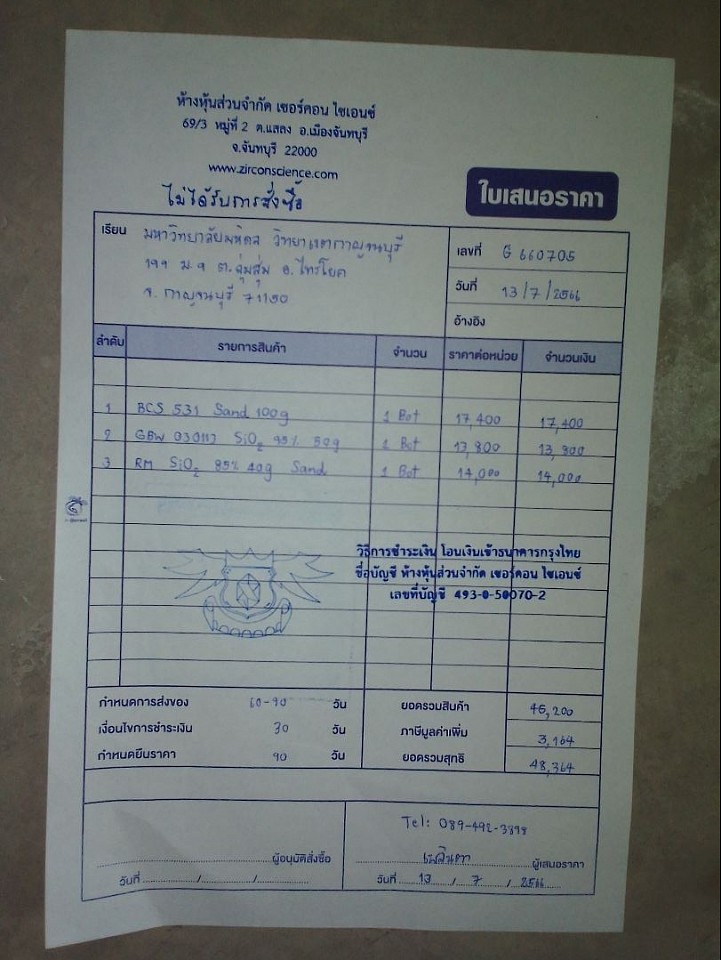 ห้างหุ้นส่วนจำกัด เซอร์คอน ไซเอนซ์
69/3 หมู่ที่ 2 ต.แสลง อ.เมืองจันทบุรี
จ.จันทบุรี 22000
www.zirconscience.com
ไม่ได้รับการสั่งซื้อ
ใบเสนอราคา
เรียน มหาวิทยาลัยมหิดล วิทยาเขตกาญจนบุรี
199 ม.9 ต.ลุ่มสุ่ม อ.ไทรโยค
จ.กาญจนบุรี 71150
เลขที่ G 660705
วันที่ 13/7/2566
อ้างอิง
ลำดับ รายการสินค้า จำนวน ราคาต่อหน่วย จำนวนเงิน
1 BCS 531 Sand 100g 1 Bot 17,400 17,400
2 GBW 030113 SiO2 95% 50g 1 Bot 13,800 13,800
3 RM SiO2 85% 40g Sand 1 Bot 14,000 14,000
วิธีการชำระเงิน โอนเงินเข้าธนาคารกรุงไทย
ชื่อบัญชี ห้างหุ้นส่วนจำกัด เซอร์คอน ไซเอนซ์
เลขที่บัญชี 493-0-50070-2
กำหนดการส่งของ 60-90 วัน ยอดรวมสินค้า 45,200
เงื่อนไขการชำระเงิน 30 วัน ภาษีมูลค่าเพิ่ม 3,164
กำหนดยืนราคา 90 วัน ยอดรวมสุทธิ 48,364
Tel: 089-492-3898
ผู้อนุมัติสั่งซื้อ ผู้เสนอราคา
วันที่ / / วันที่ 13 / 7 / 2566